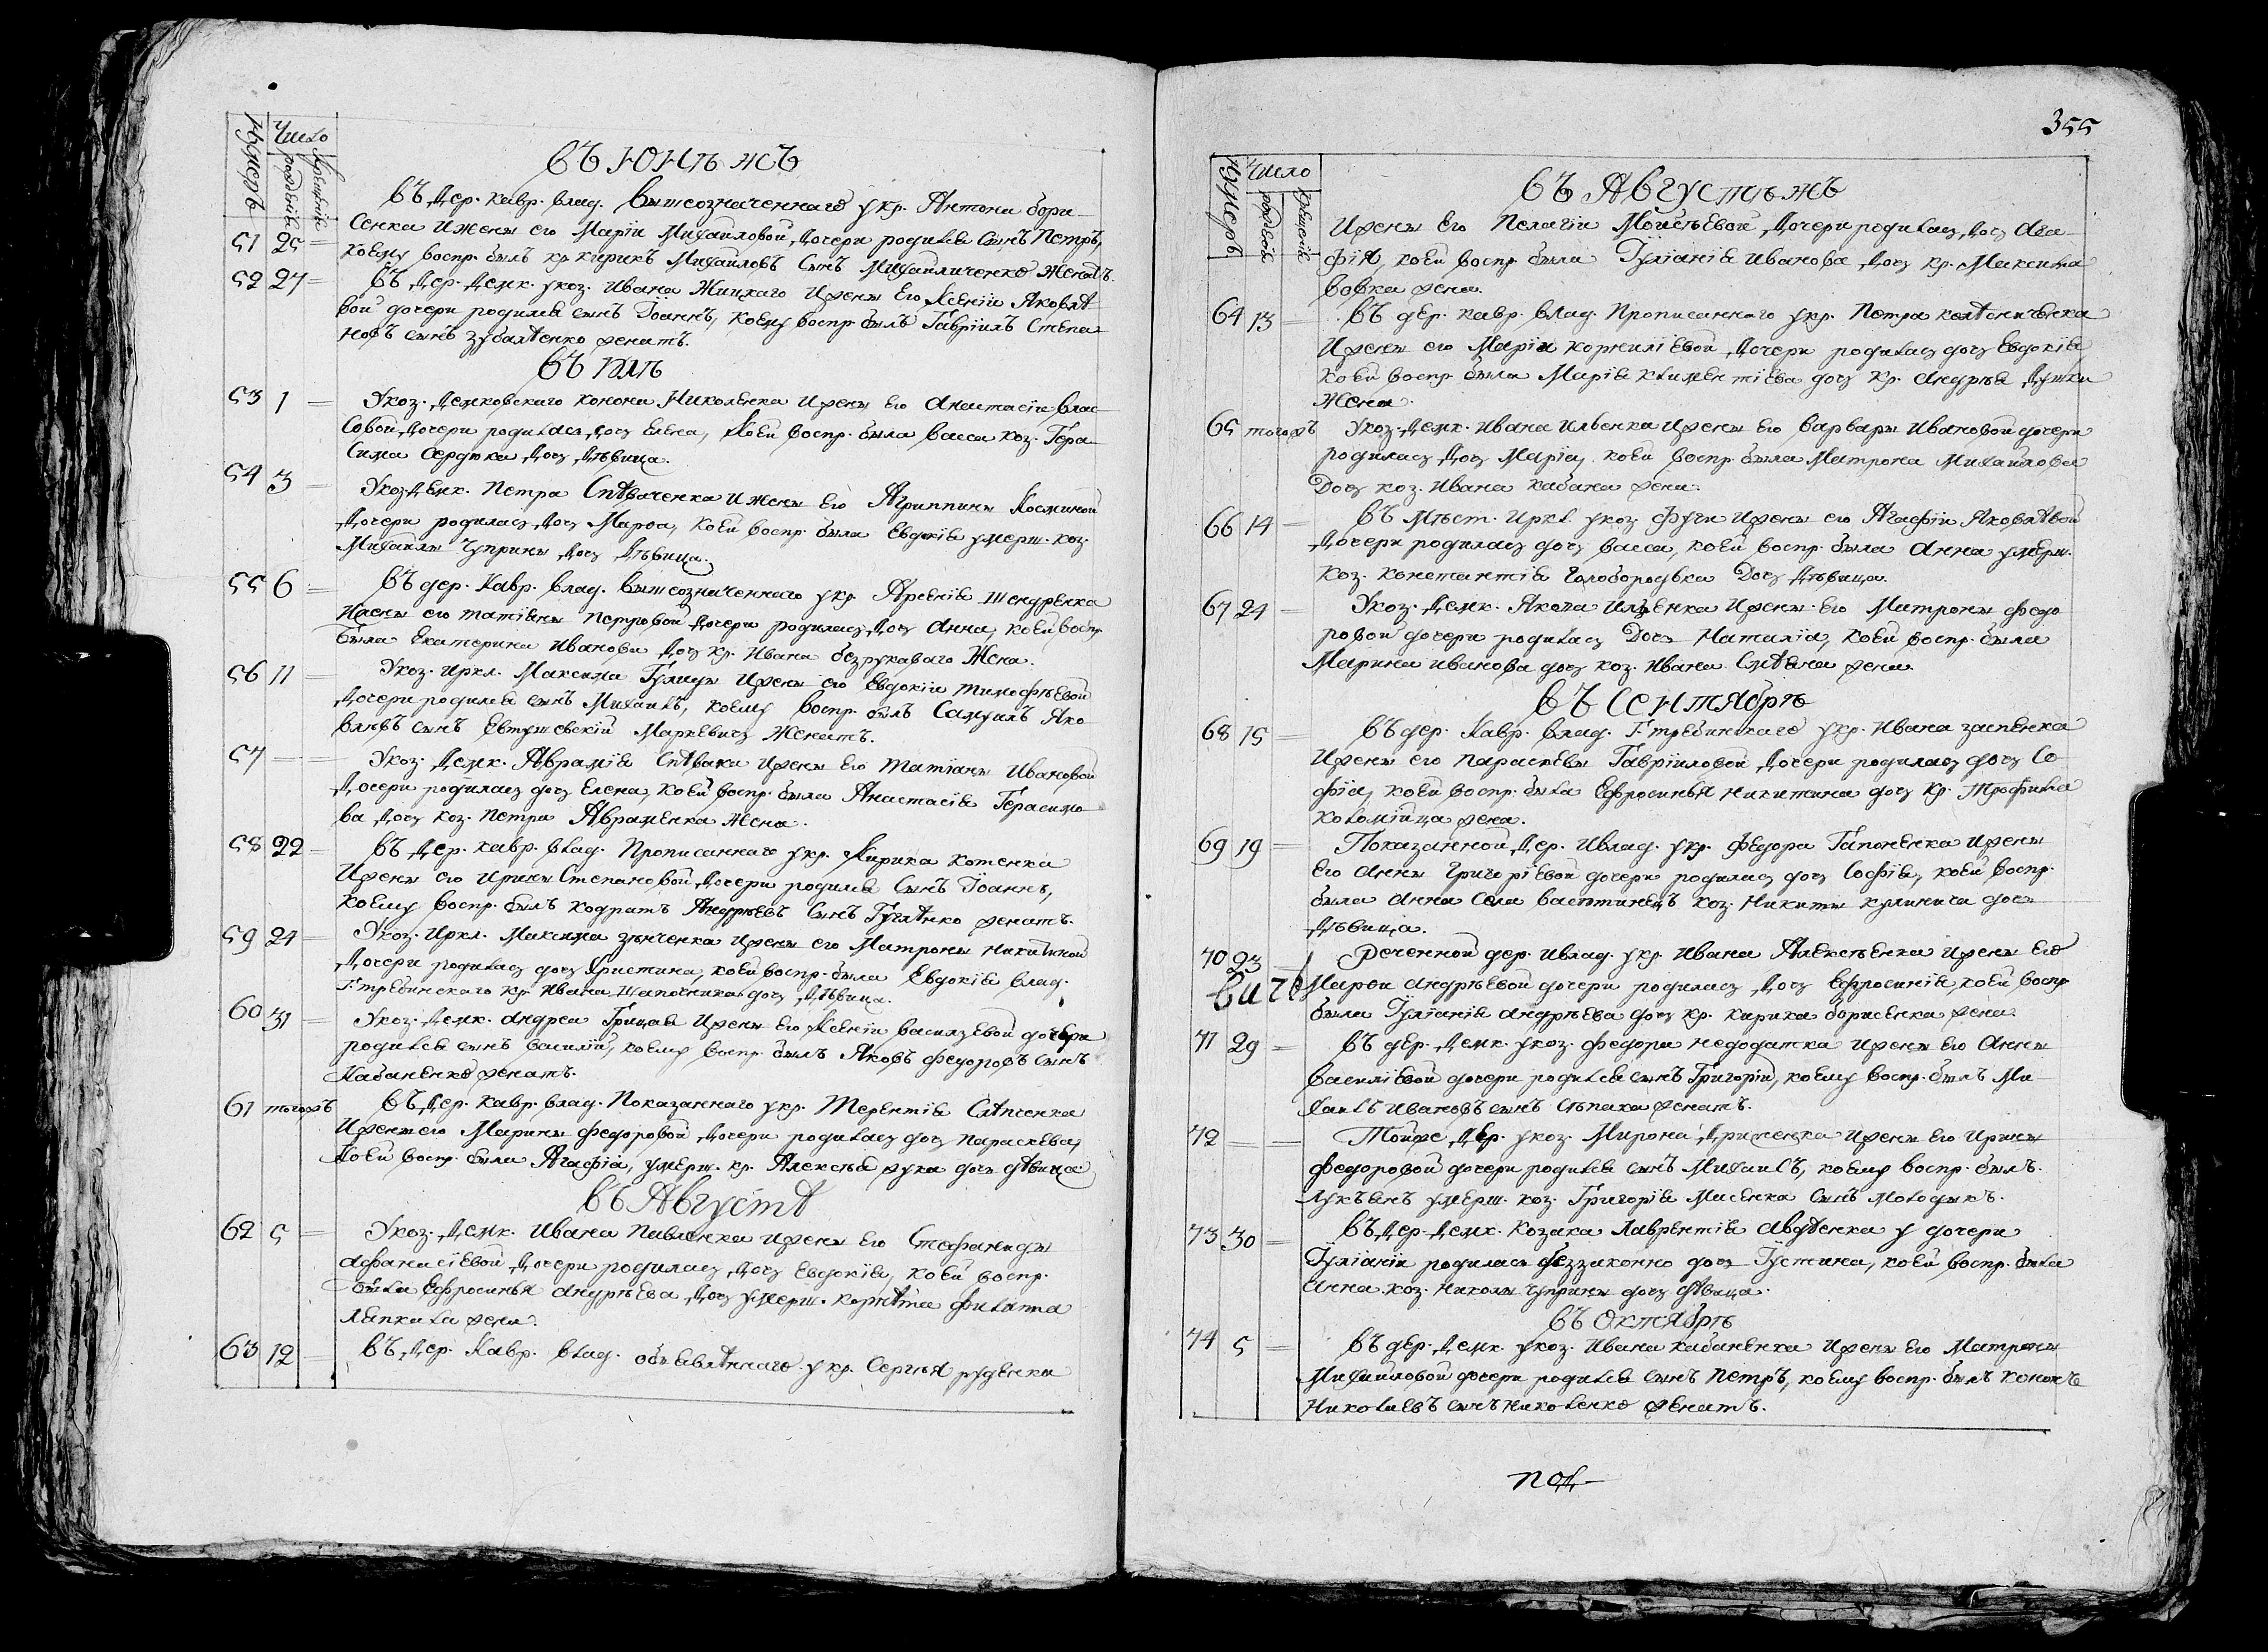 Нумеръ
Число
рожденія
крещенія
въ Юнѣ жъ
въ Дер. Кавр. влад. вышеозначеннаго у кр. Антона бори-
сенка и жены его Маріи Михайловой Дочери родился Сынъ Петръ,
51 25 = коему воспр. былъ кр. кирикъ Михайловъ Сынъ Михайличенко женатъ.
52 27 = въ Дер. Демк. у коз. Ивана Жицкаго и жены Его Ксеніи Яковле-
вой дочери родился сынъ Іоаннъ, коему воспр. былъ Гавріилъ Степа-
новъ сынъ зубаленко женатъ.
въ Іюлѣ
53 1 = У коз. Демковскаго Конона Николенка и жены Его Анастасіи Влас-
совой Дочери родилась Дочь Елена, коей воспр. была васса коз. Гера-
сима Сердюка Дочь Дѣвица.
54 3 = У коз. Демк. Петра Спѣваченка и жены Его Агриппины Косминой
Дочери родилась Дочь Марѳа, коей воспр. была Евдокія умерш. коз.
Михайлы Чуприны Дочь Дѣвица.
55 6 = въ дер. Кавр. влад. вышеозначеннаго у кр. Арсенія Шендренка
и жены его татіаны Петровой Дочери родилась Дочь Анна, коей воспр.
была Екатерина Иванова Дочь кр. Ивана безрукаваго Жена.
56 11 = У коз. Иркл. Максима Гулицы и жены его Евдокіи тимофѣевой
Дочери родился сынъ Михаилъ, коему воспр. былъ Самуилъ Яко-
влевъ сынъ Евтушевскій Маркевичъ Женатъ.
57 — — У коз. Демк. Аврамія Спѣвака и жены Его татіаны Ивановой
Дочери родилась дочь Елена, коей воспр. была Анастасія Герасимо-
ва Дочь коз. Петра Авраменка Жена.
58 22 = въ Дер. Кавр. влад. Прописаннаго у кр. Кирика Котенка
и жены его Ирины Степановой Дочери родился Сынъ Іоаннъ,
коему воспр. былъ кодратъ Андреевъ Сынъ Гугленко женатъ.
59 24 = У коз. Иркл. Максима зѣнченка и жены его Матроны Никитиной
Дочери родилась дочь Христина, коей воспр. была Евдокія влад.
Гтребинскаго кр. Ивана Шапочника дочь Дѣвица.
60 31 = У коз. Демк. Андрея Грицая и жены Его Ксеніи васильевой дочери
родился сынъ василій, коему воспр. былъ Яковъ федоровъ сынъ
Кабаненко женатъ.
61 тогожъ въ Дер. Кавр. влад. Показаннаго у кр. Терентія Слѣпченка
и жены его Марины федоровой Дочери родилась дочь параскева,
коей воспр. была Агафія, умерш. кр. Алексѣя рука дочь дѣвица
въ Августѣ
62 5 = У коз. Демк. Ивана Павленка и жены Его Стефаниды
афанасіевой Дочери родилась Дочь Евдокія, коей воспр.
была Ефросинья андрѣева Дочь умерш. корнѣта филиппа
Лепкила жена.
63 12 = въ Дер. Кавр. влад. объявленнаго у кр. Сергѣя руденка
355
Нумеръ
Число
рожденія
крещенія
въ Августѣ жъ
и жены Его Пелагіи Моисѣевой Дочери родилась Дочь Ага-
фія, коей воспр. была Іуліанія Иванова Дочь кр. Максима
вовка жена.
64 13 = въ дер. кавр. влад. Прописаннаго у кр. Петра келѣниченка
и жены его Маріи корниліевой Дочери родилась дочь Евдокія
коей воспр. была Марія климентіева дочь кр. андрѣя Душки
жена.
65 тогожъ У коз. Демк. Ивана Ильенка и жены Его варвары Ивановой дочери
родилась Дочь Марія, коей воспр. была Матрона Михайлова
Дочь коз. Ивана кабана жена.
66 14 = въ Мѣст. Иркл. у коз. Фуги и жены его Агафіи Яковлевой
Дочери родилась дочь васса, коей воспр. была Анна умерш.
коз. Константія Голобородька Дочь Дѣвица.
67 24 = У коз. Демк. Якова Ильенка и жены Его Матроны федо-
ровой дочери родилась Дочь Наталія, коей воспр. была
Марина иванова дочь коз. Ивана Смѣяна жена.
въ Сентябрѣ
68 15 = въ дер. Кавр. влад. Гтребинскаго у кр. Ивана заспенка
и жены его параскевы Гавріиловой Дочери родилась дочь Со-
фія, коей воспр. была Ефросинья никитина дочь кр. Трофима
коломійца жена.
69 19 = Показанной Дер. и влад. у кр. федора Гапоненка и жены
Его анны Григоріевой дочери родилась дочь Софія, коей воспр.
была анна села васютинецъ коз. Никиты кулинича дочь
Дѣвица.
70 23 = Реченной дер. и влад. у кр. Ивана Алексѣенка и жены Его
Марѳы андрѣевой дочери родилась Дочь Ефросинія, коей воспр.
была Іуліанія андрѣева дочь кр. кирика борисенка жена.
71 29 = въ дер. Демк. у коз. федора недодатка и жены Его Анны
василіевой дочери родился сынъ Григорій, коему воспр. былъ Ми-
хаилъ Ивановъ сынъ Слѣпака женатъ.
72 — — Тойже Дер. у коз. Мирона Дриженка и жены Его Ирины
федоровой дочери родился сынъ Михаилъ, коему воспр. былъ
Лукьянъ умерш. коз. Григорія Мисенка сынъ молодикъ.
73 30 = въ Дер. Демк. козака Лаврентія авдѣенка у дочери
Іуліаніи родилась беззаконно дочь Іустина, коей воспр. была
анна коз. николы Чуприны дочь дѣвица.
въ Октябрѣ
74 5 = въ дер. Демк. у коз. Ивана кабаненка и жены Его Матроны
Михайловой дочери родился сынъ Петръ, коему воспр. былъ кононъ
Николаевъ сынъ николенко женатъ.